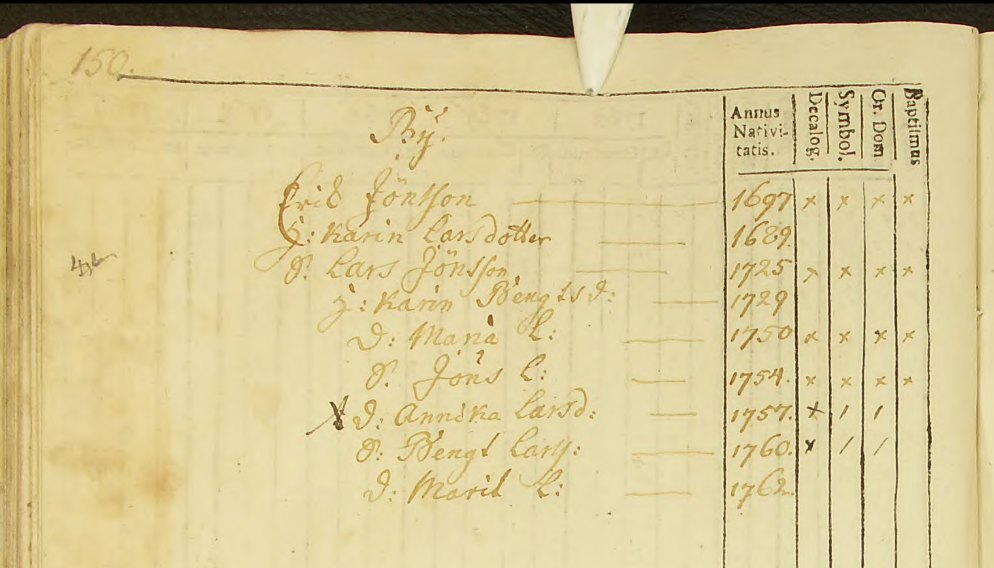 150.
Annus Nativi- tatis. Decalog. Symbol. Or. Dom Baptismus
By.
Erik Jönsson 1697 x x x x
H: Karin Larsdotter 1689.
S. Lars Jönsson 1725 x x x x
H: Karin Bengtsd: 1729
D: Maria L: 1750 x x x x
S. Jöns L: 1754. x x x x
D: Annika Larsd: 1757. x / /
S: Bengt Lars: 1760. x / /
D: Marit L: 1762.